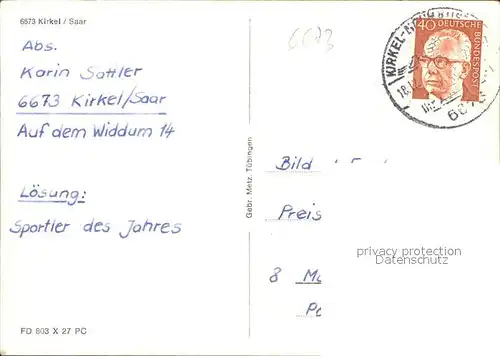 6673 Kirkel / Saar
Abs.
Karin Sattler
6673 Kirkel/Saar
Auf dem Widdum 14
Lösung:
Sportler des Jahres
FD 803 X 27 PC
Gebr. Metz, Tübingen
6673
40 DEUTSCHE BUNDESPOST
KIRKEL-
18.12
Bild
Preis
8
privacy protection
Datenschutz